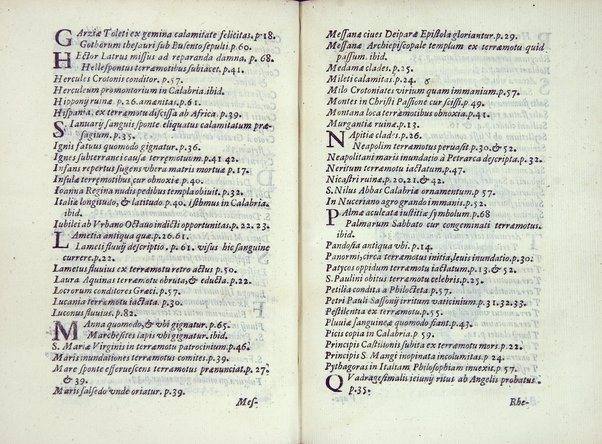 GArziæ Toleti ex gemina calamitate felicitas. p. 18.
Gothorum thesauri sub Busento sepulti. p. 60.
HEctor Latrus missus ad reparanda damna, p. 68.
Hellespontus terræmotibus subiacet, p. 41.
Hercules Crotonis conditor. p. 57.
Herculeum promontorium in Calabria. ibid.
Hipponÿ ruinæ p. 26. amænitas. p. 61.
Hispania, ex terræmotu discissa ab Africa. p. 39.
SIanuarÿ sanguis sponte eliquatus calamitatum præ-
sagium. p. 35.
Ignis fatuus quomodo gignatur. p. 36.
Ignes subterranei causa terræmotuum. p. 41 42.
Infans repertus sugens vbera matris mortuæ p. 17.
Insulæ terræmotibus cur obnoxiæ p. 40.
Ioanna Regina nudis pedibus templa obiuit. p. 32.
Italiæ longitudo, & latitudo. p. 40. Isthmus in Calabria.
ibid.
Iubilei ab Vrbano Octauo indicti opportunitas. p. 22. 23.
LAmetia antiqua quæ. p. 26. 61.
Lametÿ fluuÿ descriptio. p. 61. visus hic sanguine
currere. p. 22.
Lametus fluuius ex terræmotu retro actus p. 50.
Laura Aquinas terræmotu obruta, & educta. p. 22.
Locrorum conditores Græci. p. 57.
Lucania terræmotu iactata. p. 30.
Luconus fluuius. p. 82.
MAnna quomodo, & vbi gignatur. p. 65.
Marchesites lapis vbi gignatur. ibid.
S. Mariæ Virginis in terræmotu patrocinium. p. 46.
Maris inundationes terræmotus comites. p. 39.
Mare sponte efferuescens terræmotus prænunciat. p. 27.
& 39.
Maris salsedo vnde oriatur. p. 39.
Mes-
Messanæ ciues Deiparæ Epistola gloriantur. p. 29.
Messanæ Archiepiscopale templum ex terræmotu quid
passum. ibid.
Medama clades. p. 25.
Mileti calamitas. p. 24.
Milo Crotoniates virium quam immanium. p. 57.
Montes in Christi Passione cur scissi. p. 49.
Montana loca terræmotibus obnoxia. p. 41.
Murgantiæ ruinæ. p. 13.
NApitiæ clades. p. 26.
Neapolim terræmotus peruasit p. 30. & 52.
Neapolitani maris inundatio à Petrarca descripta. p. 32.
Neritum terræmotu iactatum. p. 47.
Nicastri ruinæ, p. 20. 21. & 42.
S. Nilus Abbas Calabriæ ornamentum. p. 57.
In Nuceriano agro grando immanis. p. 52.
PAlmæ aculeata iustitiæ symbolum. p. 68
Palmarum Sabbato cur congeminati terræmotus.
ibid.
Pandosia antiqua vbi. p. 14.
Panormi, circa terræmotus initia, leuis inundatio. p. 30.
Patycos oppidum terræmotu iactatum. p. 13. & 52.
S. Paulini obitus terræmotu celebris. p. 25.
Petilia condita à Philocteta p. 57.
Petri Pauli Sassonÿ irritum vaticinium. p. 31. 32. 33.
Pestilentia ex terræmotu. p. 55.
Pluuiæ sanguineæ quomodo fiant. p. 43.
Picis copia in Calabria. p. 59.
Principis Castilionis subita ex terræmotu mors. p. 22.
Principis S. Mangi inopinata incolumitas. p. 24.
Pythagoras in Italiam Philosophiam inuexit. p. 57.
QVadragesimalis ieiunÿ ritus ab Angelis probatus.
p. 35.
Rhe-